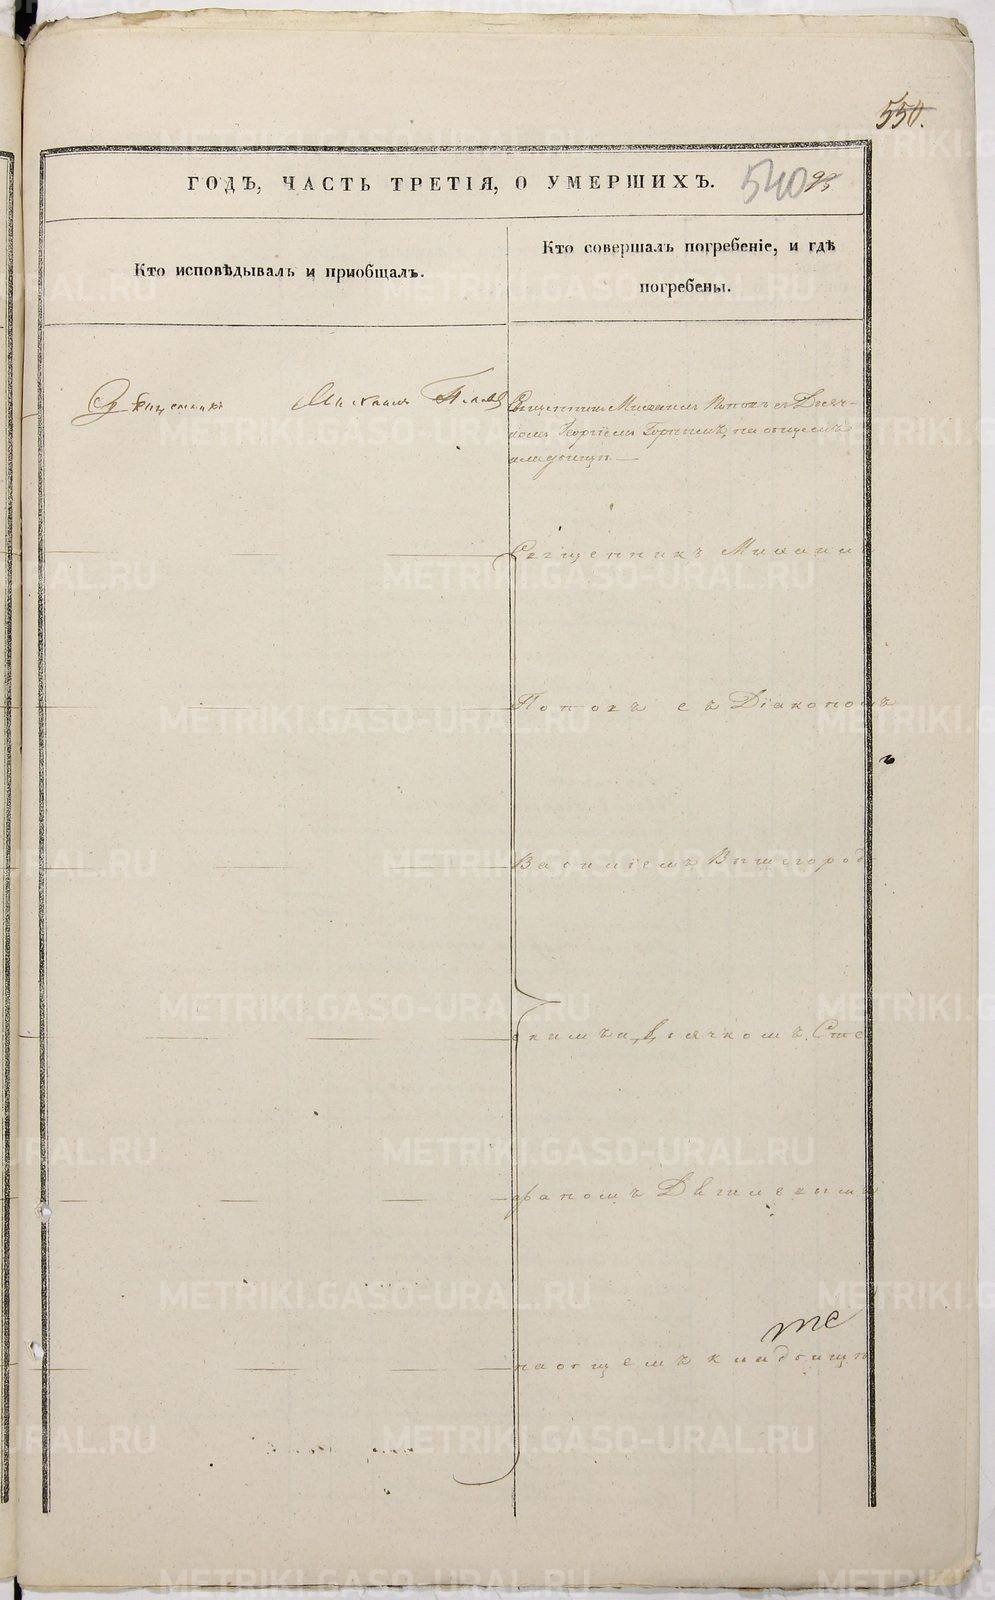 550.
ГОДЪ, ЧАСТЬ ТРЕТІЯ, О УМЕРШИХЪ. 540 93
Кто исповѣдывалъ и приобщалъ.
Кто совершалъ погребеніе, и гдѣ
погребены.
Священникъ Михаилъ Поповъ
Священникъ Михаилъ Поповъ съ Дьяч-
комъ Георгіемъ на общемъ
кладбищѣ —
Священникъ Михаил
Поповъ съ Діакономъ
Василіемъ Вышегород
скимъ и дьячкомъ Сте
фаномъ
на общемъ кладбищѣ
METRIKI.GASO-URAL.RU